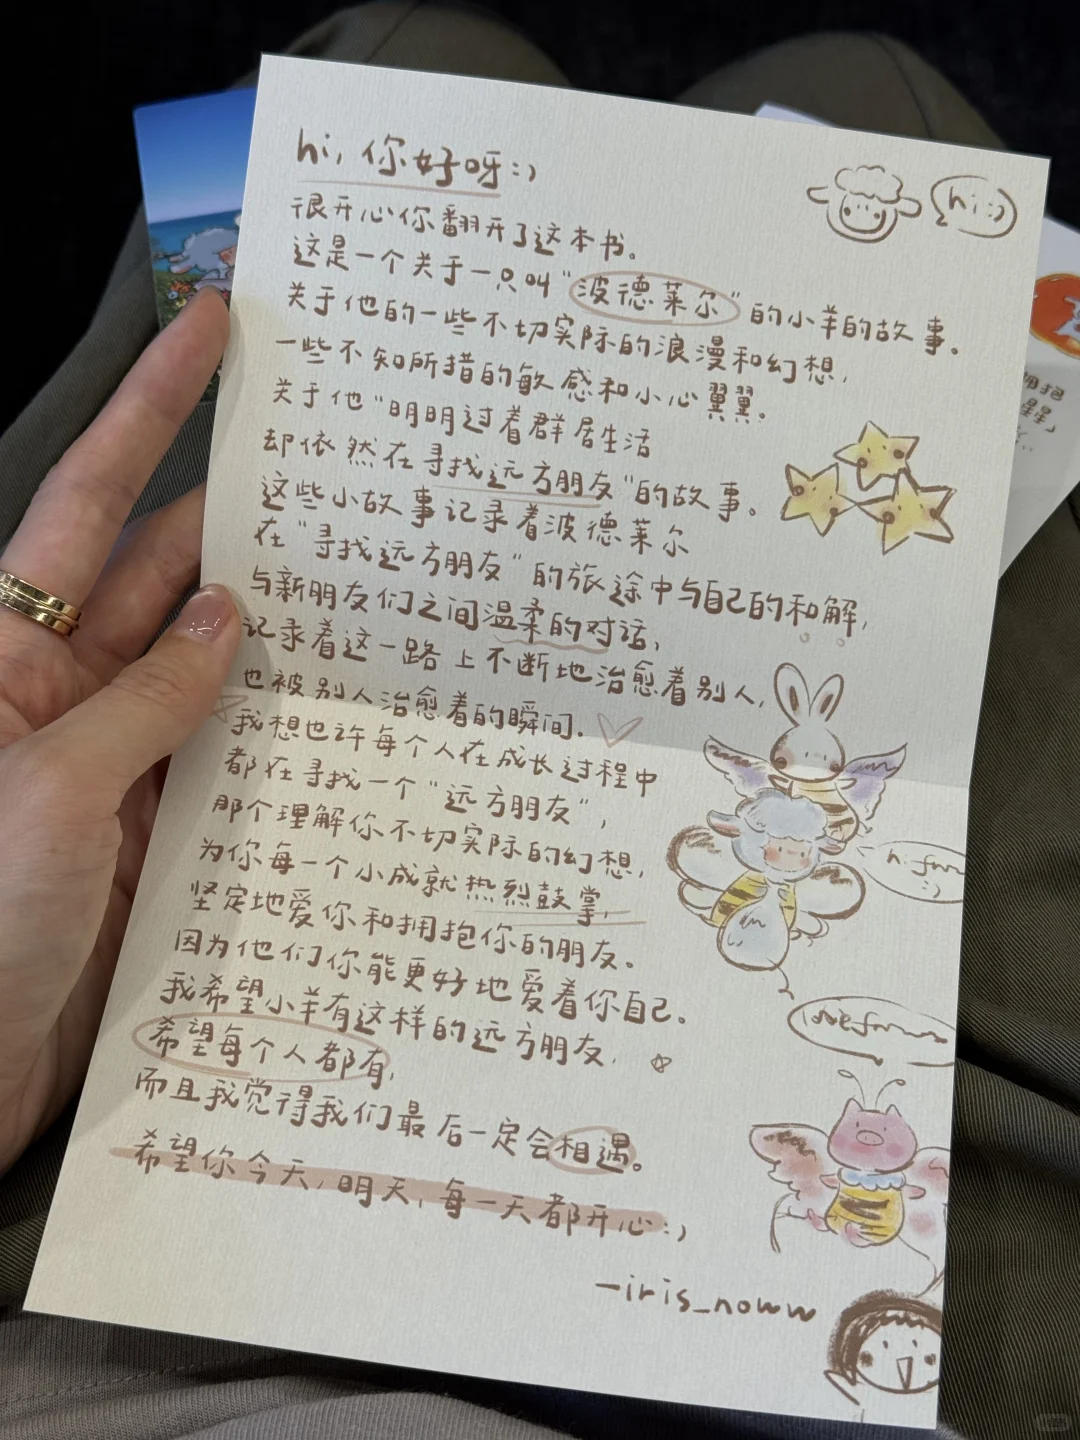 hi, 你好呀:)
hi:)
很开心你翻开了这本书。
这是一个关于一只叫“波德莱尔”的小羊的故事。
关于他的一些不切实际的浪漫和幻想,
一些不知所措的敏感和小心翼翼。
关于他“明明过着群居生活
却依然在寻找远方朋友”的故事。
这些小故事记录着波德莱尔
在“寻找远方朋友”的旅途中与自己的和解,
与新朋友们之间温柔的对话,
记录着这一路上不断地治愈着别人,
也被别人治愈着的瞬间.
我想也许每个人在成长过程中
都在寻找一个“远方朋友”,
那个理解你不切实际的幻想,
为你每一个小成就热烈鼓掌,
坚定地爱你和拥抱你的朋友。
因为他们你能更好地爱着你自己。
我希望小羊有这样的远方朋友,
希望每个人都有,
而且我觉得我们最后一定会相遇。
希望你今天,明天,每一天都开心:)
—iris_noww
拥抱